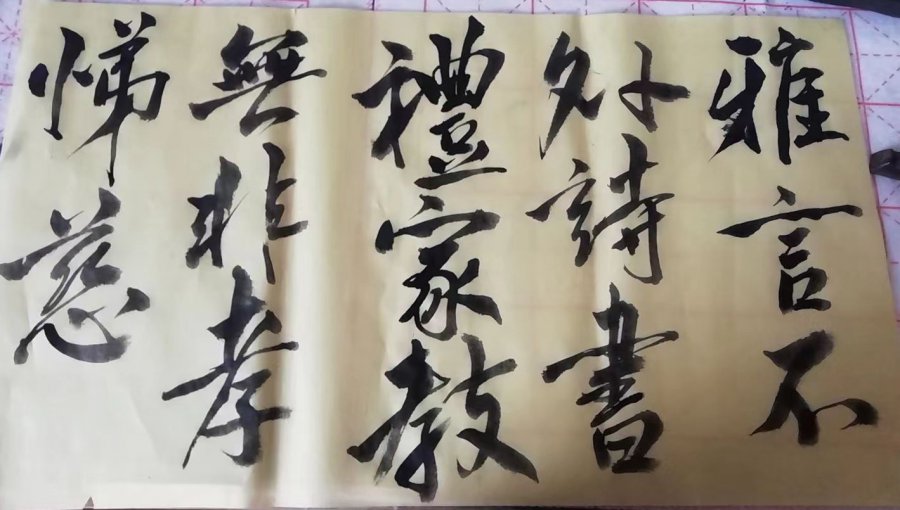 雅言不
外詩書
禮家教
無非孝
悌慈